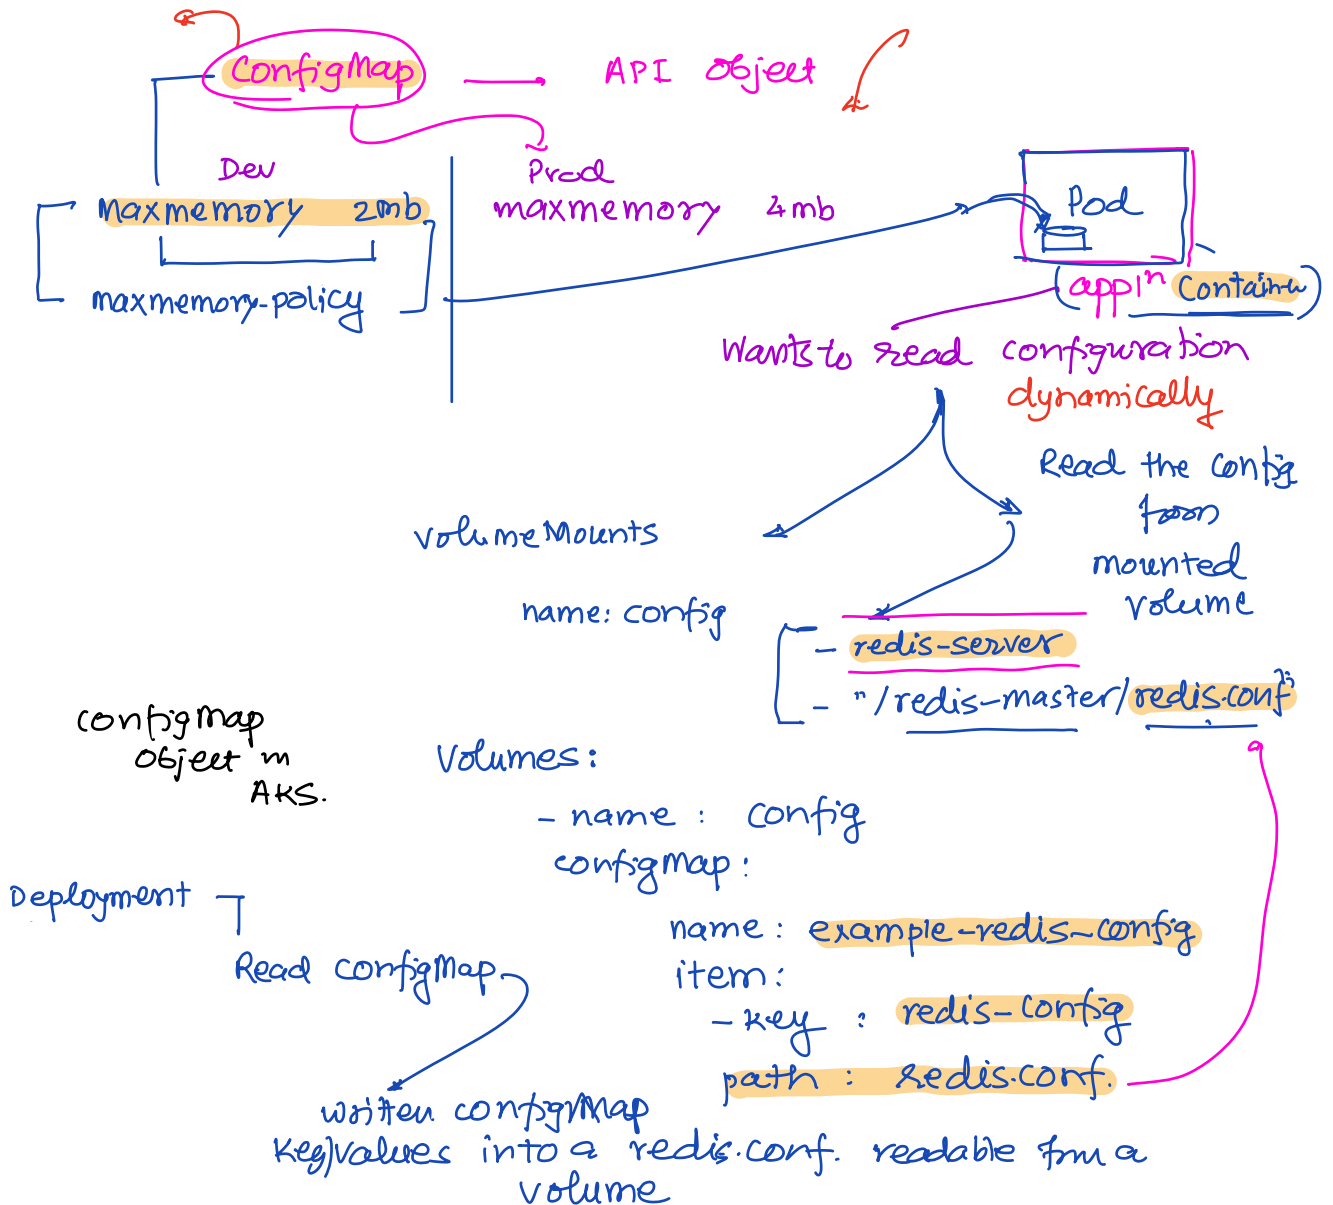 ConfigMap API Object
Dev
Prod
maxmemory 2mb
maxmemory 4mb
Pod
maxmemory-policy
(appln Container)
Wants to read configuration
dynamically
Read the config
from
mounted
volume
volumeMounts
name: config
- redis-server
- "/redis-master/redis.conf"
configMap
Object in
AKS.
Volumes:
- name : config
configMap:
name: example-redis-config
item:
- key : redis-config
path : redis.conf.
Deployment
Read configMap
written configMap
key/values into a redis.conf. readable from a
volume